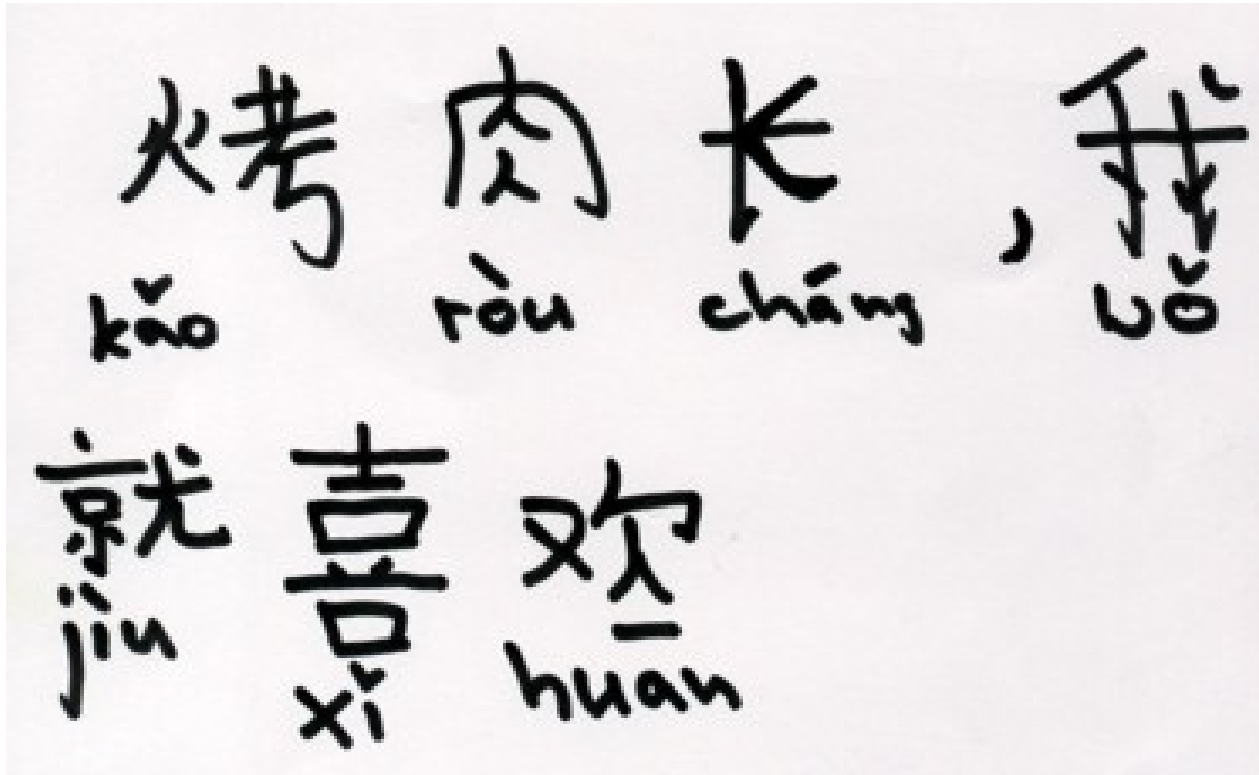 烤肉长，我
kǎo ròu cháng wǒ
就喜欢
jìu xǐ huān